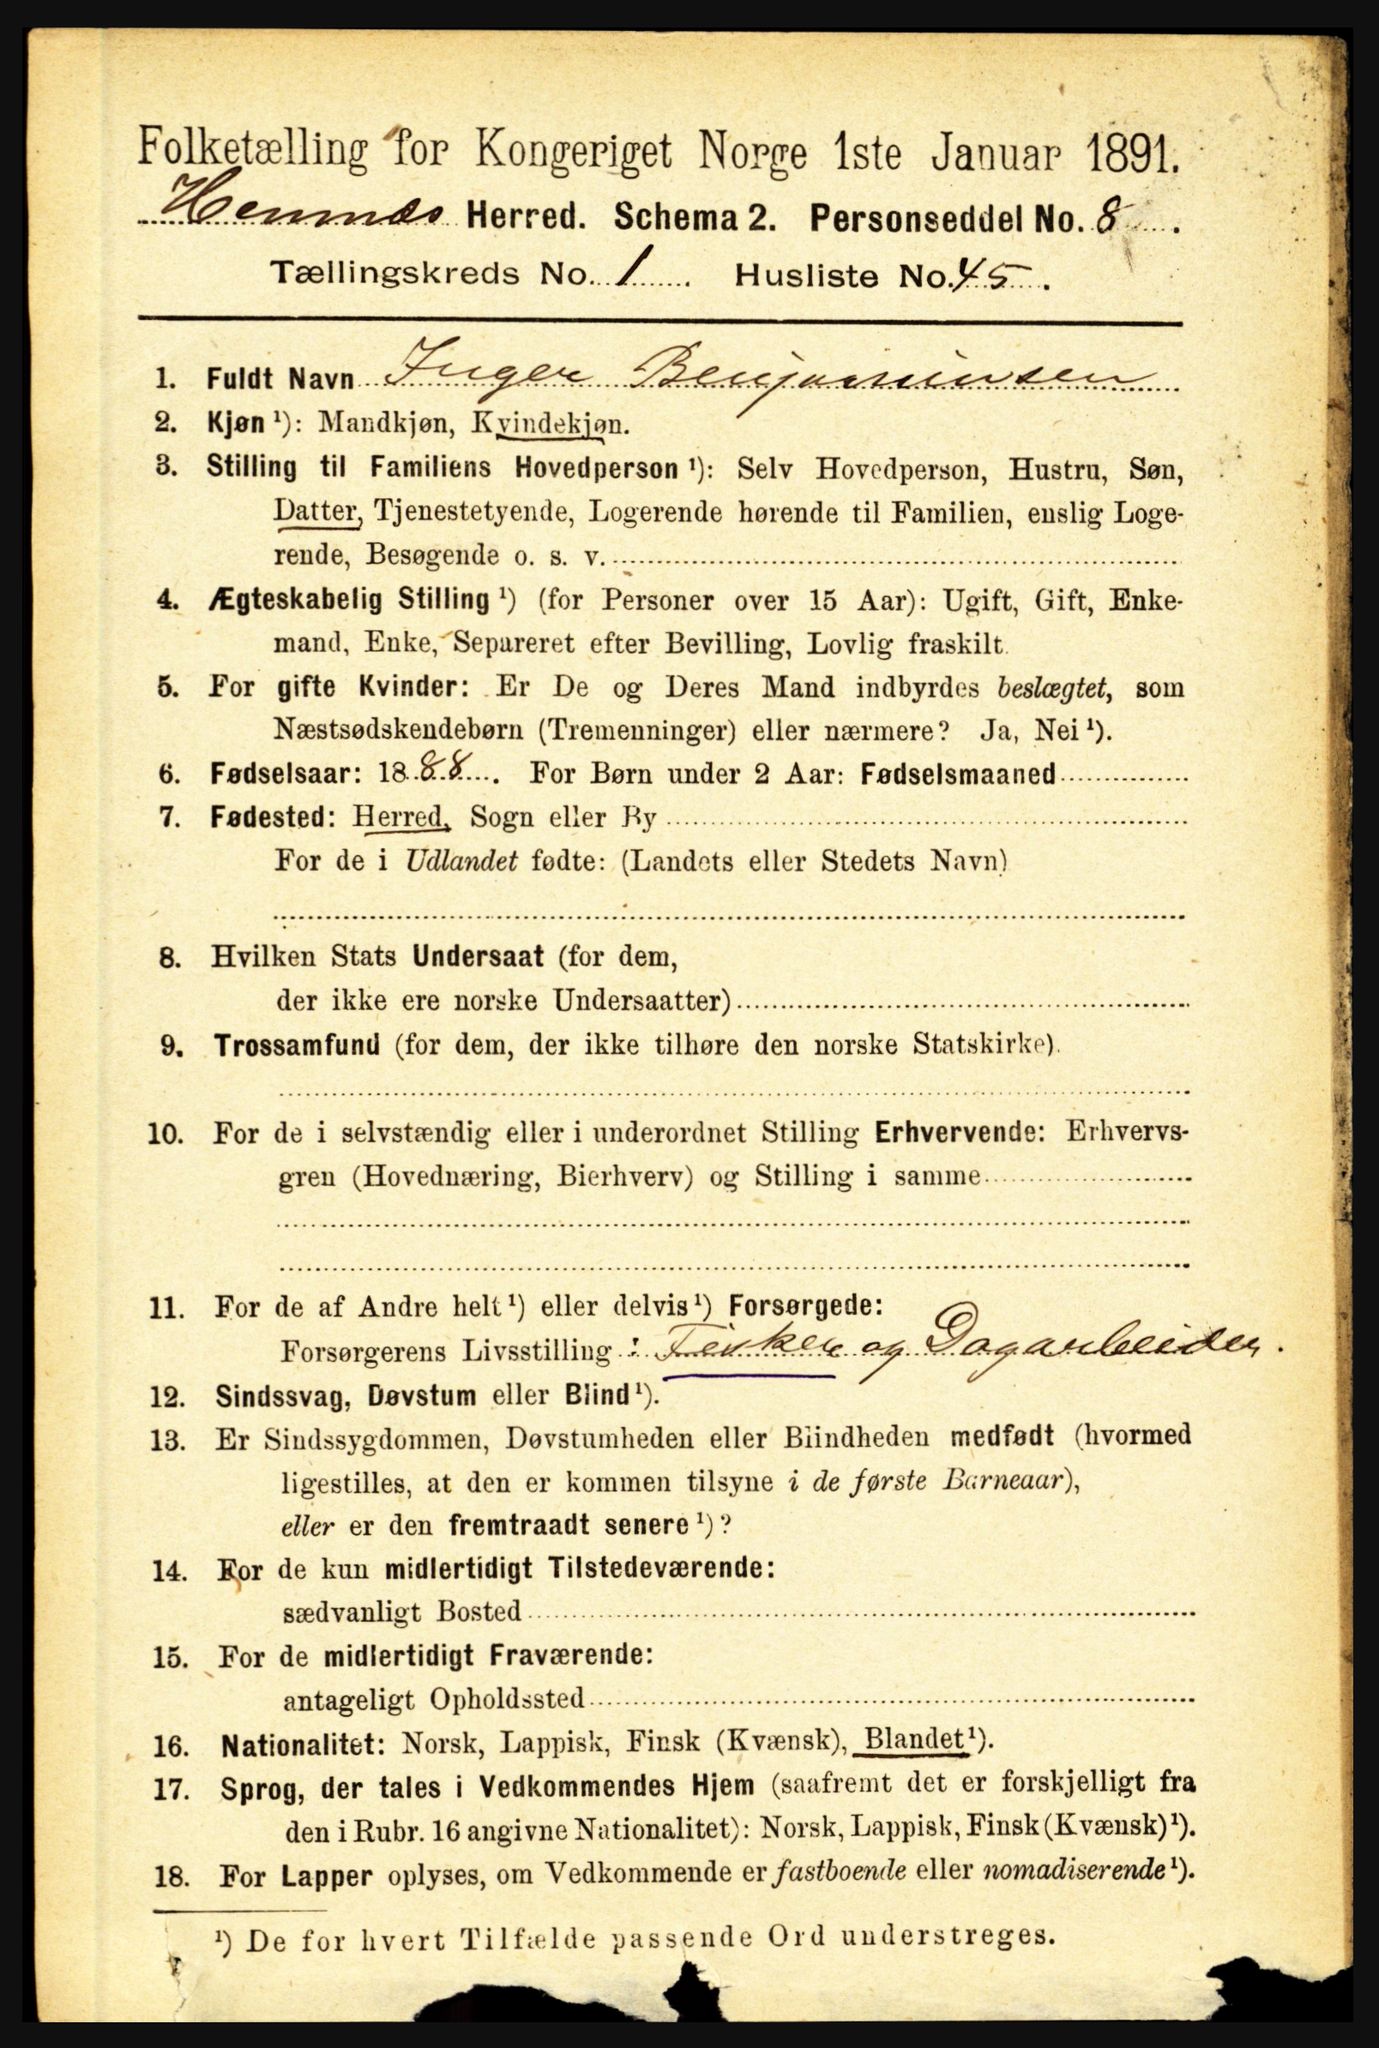 Folketælling for Kongeriget Norge 1ste Januar 1891.
Hemnæs Herred. Schema 2. Personseddel No. 8.
Tællingskreds No. 1. Husliste No. 45.
1. Fuldt Navn Inger Benjaminsen
2. Kjøn ¹): Mandkjøn, Kvindekjøn.
3. Stilling til Familiens Hovedperson ¹): Selv Hovedperson, Hustru, Søn,
Datter, Tjenestetyende, Logerende hørende til Familien, enslig Loge-
rende, Besøgende o. s. v.
4. Ægteskabelig Stilling ¹) (for Personer over 15 Aar): Ugift, Gift, Enke-
mand, Enke, Separeret efter Bevilling, Lovlig fraskilt.
5. For gifte Kvinder: Er De og Deres Mand indbyrdes beslægtet, som
Næstsødskendebørn (Tremenninger) eller nærmere? Ja, Nei ¹).
6. Fødselsaar: 1888. For Børn under 2 Aar: Fødselsmaaned
7. Fødested: Herred, Sogn eller By
For de i Udlandet fødte: (Landets eller Stedets Navn)
8. Hvilken Stats Undersaat (for dem,
der ikke ere norske Undersaatter)
9. Trossamfund (for dem, der ikke tilhøre den norske Statskirke).
10. For de i selvstændig eller i underordnet Stilling Erhvervende: Erhvervs-
gren (Hovednæring, Bierhverv) og Stilling i samme
11. For de af Andre helt ¹) eller delvis ¹) Forsørgede:
Forsørgerens Livsstilling : Fisker og Dagarbeider.
12. Sindssvag, Døvstum eller Blind ¹).
13. Er Sindssygdommen, Døvstumheden eller Blindheden medfødt (hvormed
ligestilles, at den er kommen tilsyne i de første Barneaar),
eller er den fremtraadt senere ¹)?
14. For de kun midlertidigt Tilstedeværende:
sædvanligt Bosted
15. For de midlertidigt Fraværende:
antageligt Opholdssted
16. Nationalitet: Norsk, Lappisk, Finsk (Kvænsk), Blandet ¹).
17. Sprog, der tales i Vedkommendes Hjem (saafremt det er forskjelligt fra
den i Rubr. 16 angivne Nationalitet): Norsk, Lappisk, Finsk (Kvænsk) ¹).
18. For Lapper oplyses, om Vedkommende er fastboende eller nomadiserende ¹).
¹) De for hvert Tilfælde passende Ord understreges.